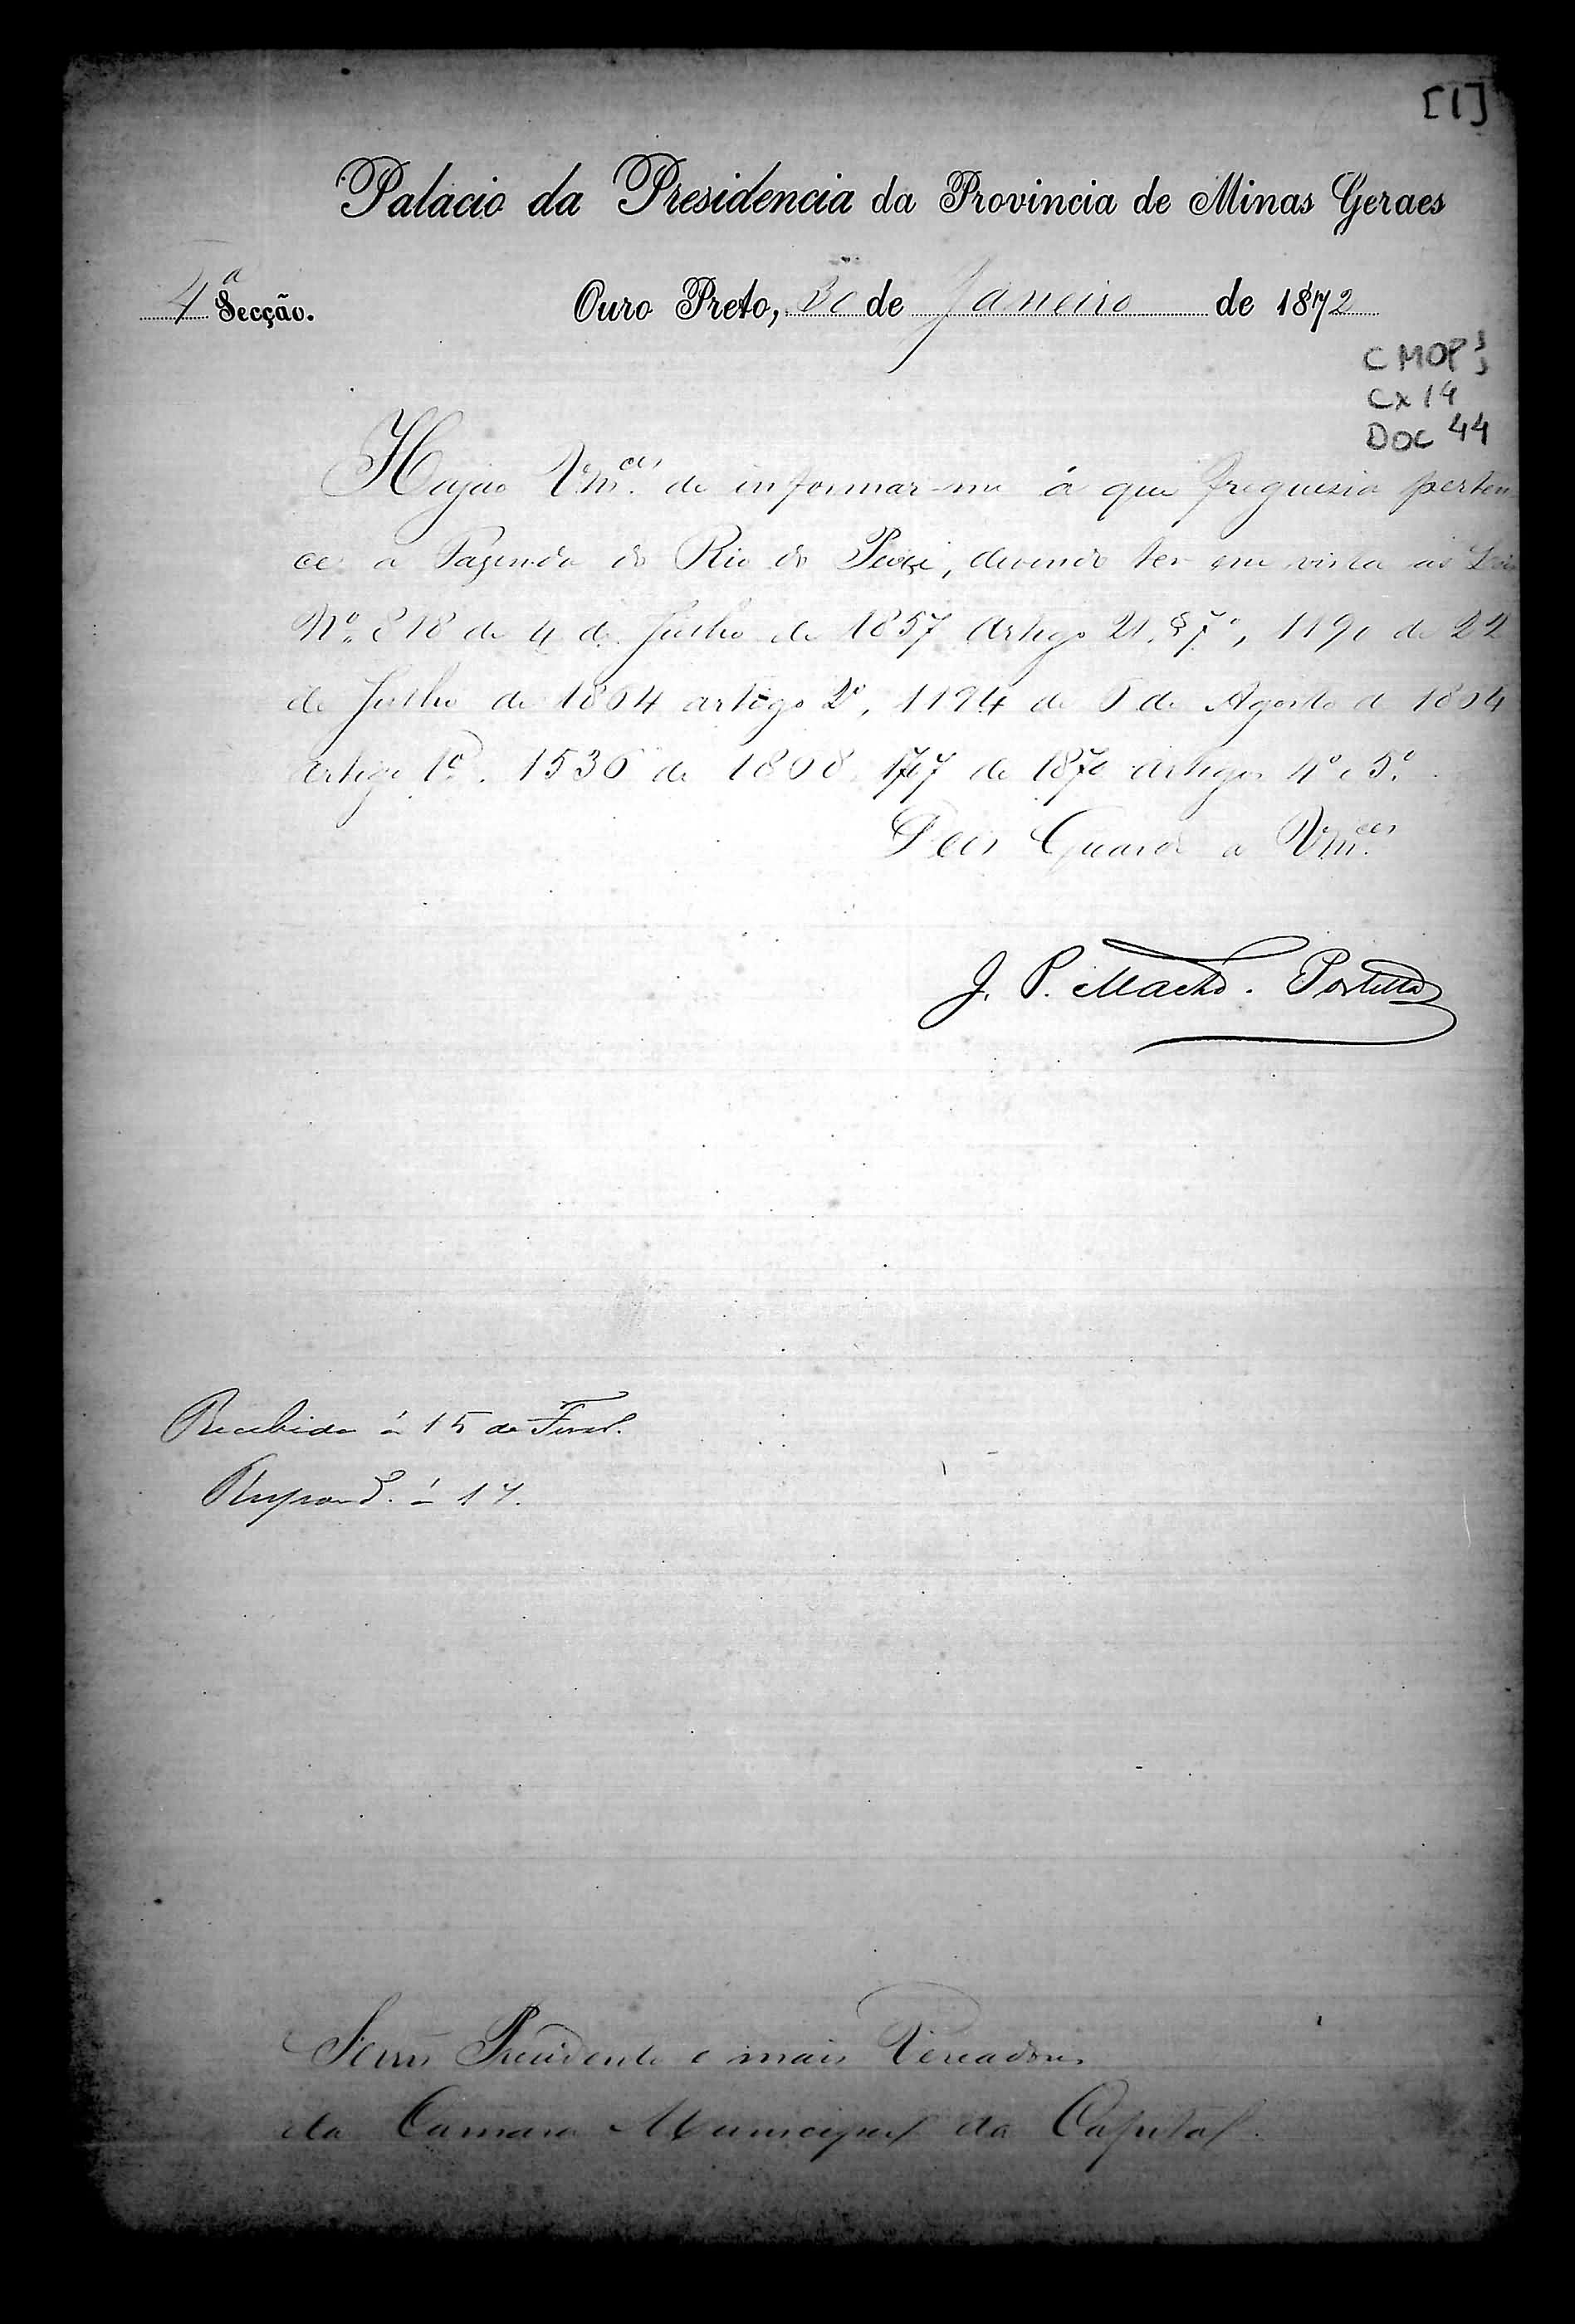 [1]
Palacio da Presidencia da Provincia de Minas Geraes
4ª Secção. Ouro Preto, 30 de Janeiro de 1872
CMOP
Cx 14
DOC 44
Hajão Vm.ces de informar-me á que freguesia perten
ce a Fazenda do Rio do Peixe, devendo ter em vista as Leis
Nº. 818 de 4 de Julho de 1857 Artigo 21. § 7º, 1190 de 22
de Julho de 1864 artigo 2º, 1194 de 6 de Agosto de 1864
artigo 1º. 1536 de 1868, 1707 de 1870 artigos 4º e 5º.
Deos Guarde a Vm.ces
J. P. Machdº. Portella
Recebido á 15 de Fevrº.
Respond. á 17.
Senrs Presidente e mais Vereadores
da Camara Municipal da Capital.